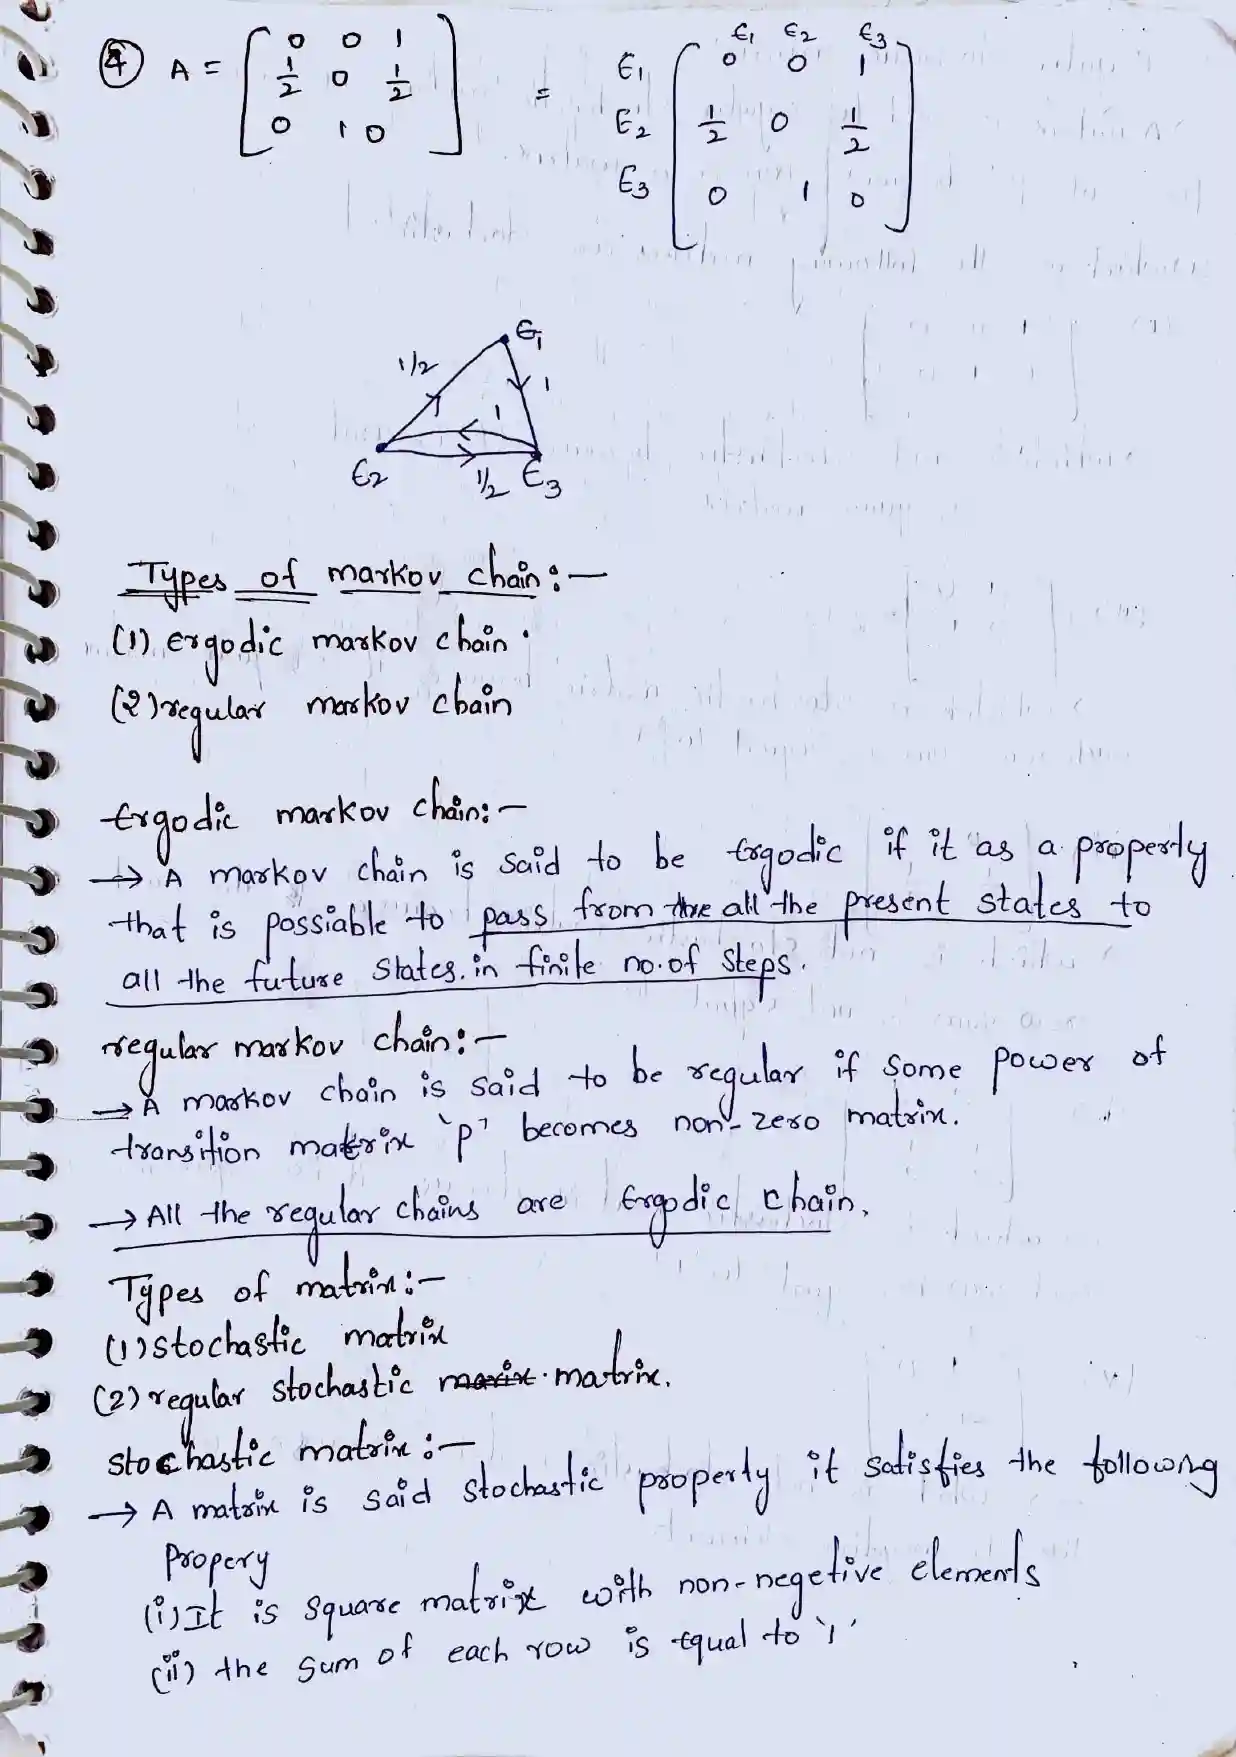 ④ A = [ 0 0 1
1/2 0 1/2
0 1 0 ]
= E1 E2 E3
E1 [ 0 0 1
E2 1/2 0 1/2
E3 0 1 0 ]
E1
1/2
1
1
E2 1/2 E3
Types of markov chain:-
(1) Ergodic markov chain.
(2) regular markov chain
Ergodic markov chain:-
→ A markov chain is said to be Ergodic if it as a properly
that is possiable to pass from the all the present states to
all the future states. in finite no. of steps.
regular markov chain:-
→ A markov chain is said to be regular if some power of
transition matrix 'p' becomes non-zero matrix.
→ All the regular chains are Ergodic chain.
Types of matrix:-
(1) stochastic matrix
(2) regular stochastic marix. matrix.
stochastic matrix:-
→ A matrix is said stochastic property it satisfies the following
propery
(i) It is square matrix with non-negetive elements
(ii) the sum of each row is equal to '1'